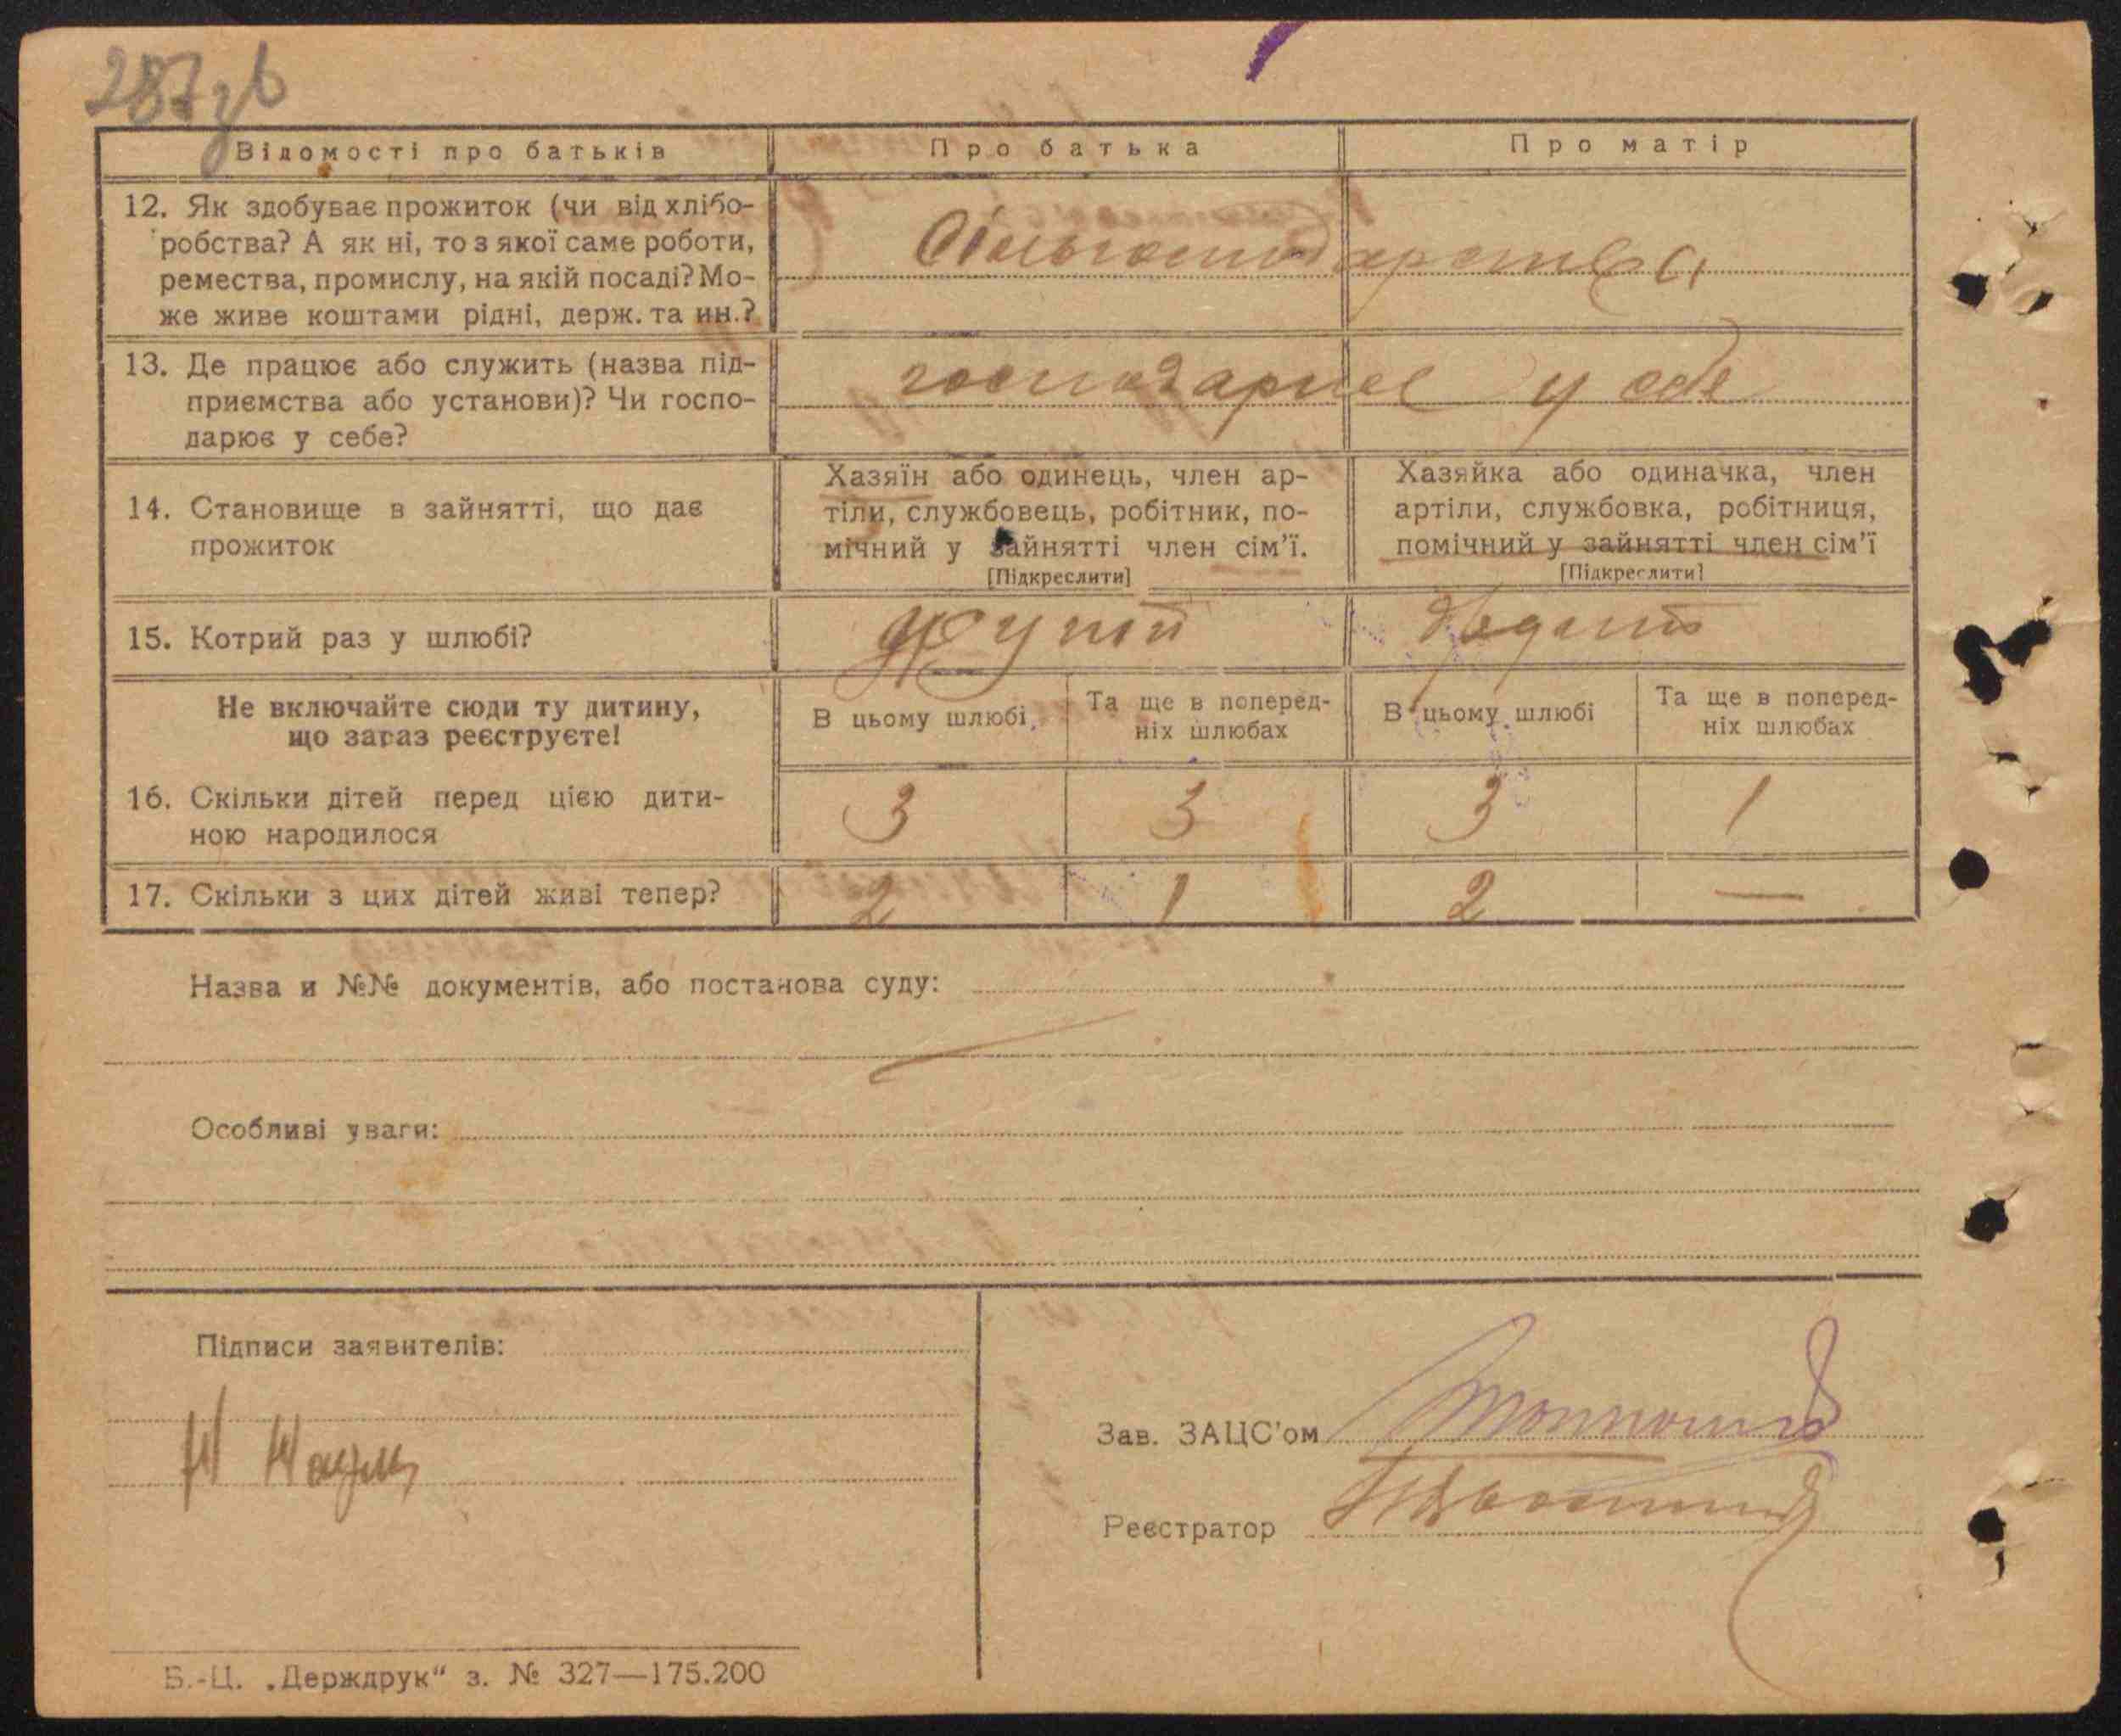 287зв
Відомості про батьків
Про батька
Про матір
12. Як здобуває прожиток (чи від хлібо-
робства? А як ні, то з якої саме роботи,
ремества, промислу, на якій посаді? Мо-
же живе коштами рідні, держ. та ин.?
Сільгосподарства
13. Де працює або служить (назва під-
приємства або установи)? Чи госпо-
дарює у себе?
господарює у себе
14. Становище в зайнятті, що дає
прожиток
Хазяїн або одинець, член ар-
тіли, службовець, робітник, по-
мічний у зайнятті член сім'ї.
[Підкреслити]
Хазяйка або одиначка, член
артіли, службовка, робітниця,
помічний у зайнятті член сім'ї
[Підкреслити]
15. Котрий раз у шлюбі?
Не включайте сюди ту дитину,
що зараз реєструєте!
В цьому шлюбі
Та ще в поперед-
ніх шлюбах
В цьому шлюбі
Та ще в поперед-
ніх шлюбах
16. Скільки дітей перед цією дити-
ною народилося
3 3 3 1
17. Скільки з цих дітей живі тепер?
2 1 2 —
Назва и №№ документів, або постанова суду:
Особливі уваги:
Підписи заявителів:
Зав. ЗАЦС'ом
Реєстратор
Б.-Ц. „Держдрук" з. № 327—175.200